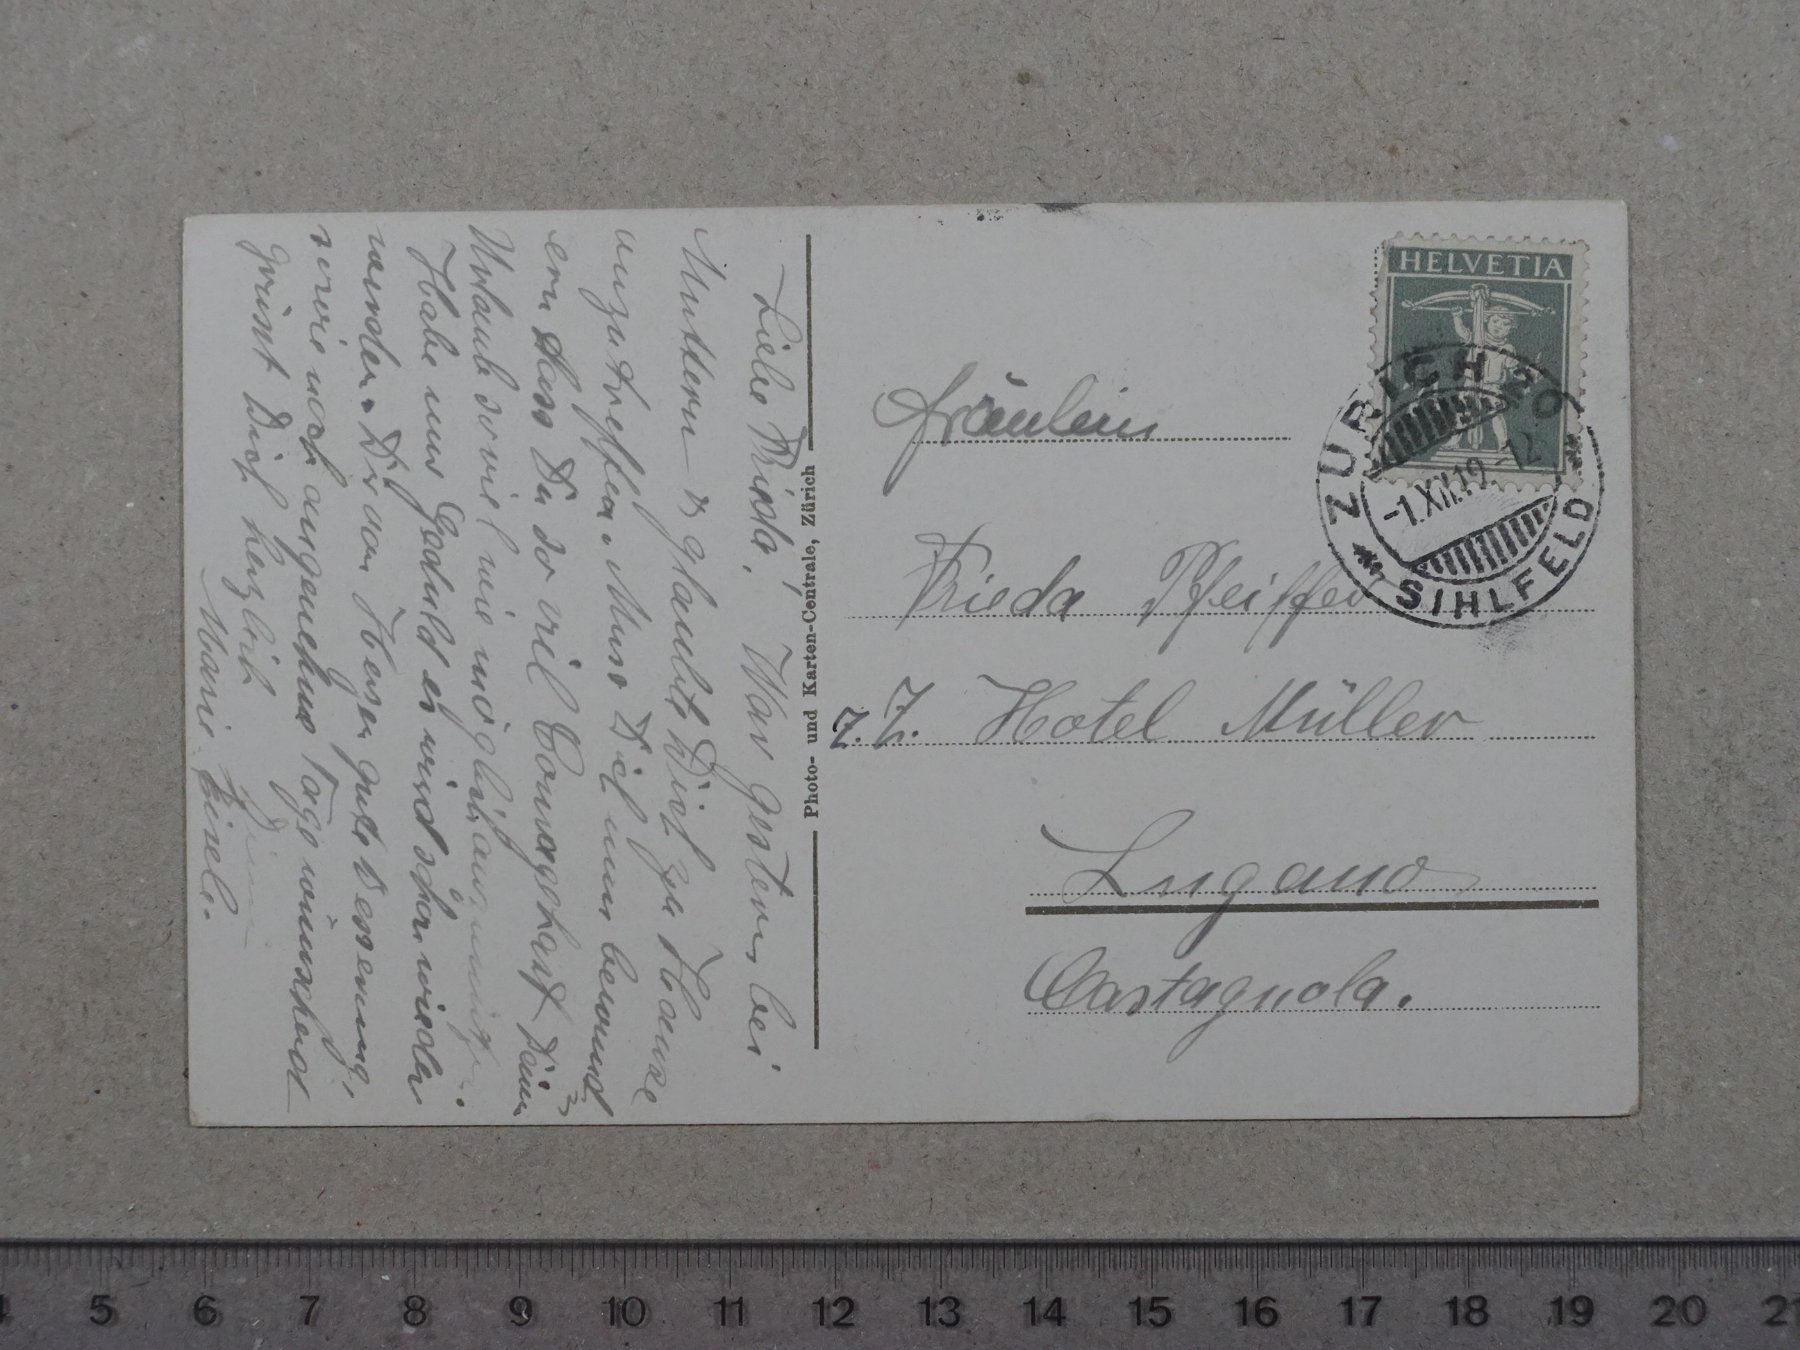 Liebe Frieda, War gestern bei
Muttern & glaubte Dich zu Hause
anzutreffen. Muss Dich nun bewund
ern dass Du so viel Courage hast Dein
Urlaub soviel wie möglich
Habe nur Geduld es wird schon wieder
werden. Dir von Herzen gute Besserung,
sowie noch angenehme Tage wünschend
grüsst Dich herzlich
Marie
Photo- und Karten-Centrale, Zürich
HELVETIA
ZÜRICH 20
-1.XII.19.-12
* SIHLFELD *
Fräulein
Frieda Pfeiffer
z. Z. Hotel Müller
Lugano
Castagnola.
4 5 6 7 8 9 10 11 12 13 14 15 16 17 18 19 20 21